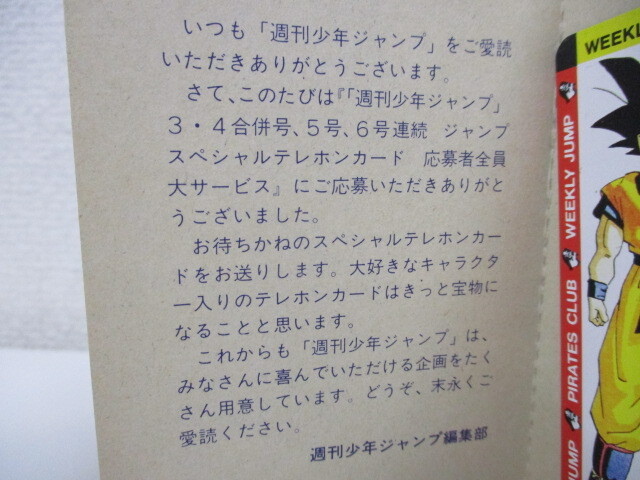 いつも「週刊少年ジャンプ」をご愛読
いただきありがとうございます。
さて、このたびは『「週刊少年ジャンプ」
3・4合併号、5号、6号連続 ジャンプ
スペシャルテレホンカード 応募者全員
大サービス』にご応募いただきありがと
うございました。
お待ちかねのスペシャルテレホンカー
ドをお送りします。大好きなキャラクタ
ー入りのテレホンカードはきっと宝物に
なることと思います。
これからも「週刊少年ジャンプ」は、
みなさんに喜んでいただける企画をたく
さん用意しています。どうぞ、末永くご
愛読ください。
週刊少年ジャンプ編集部
WEEKL
WEEKLY JUMP
PIRATES CLUB
JUMP